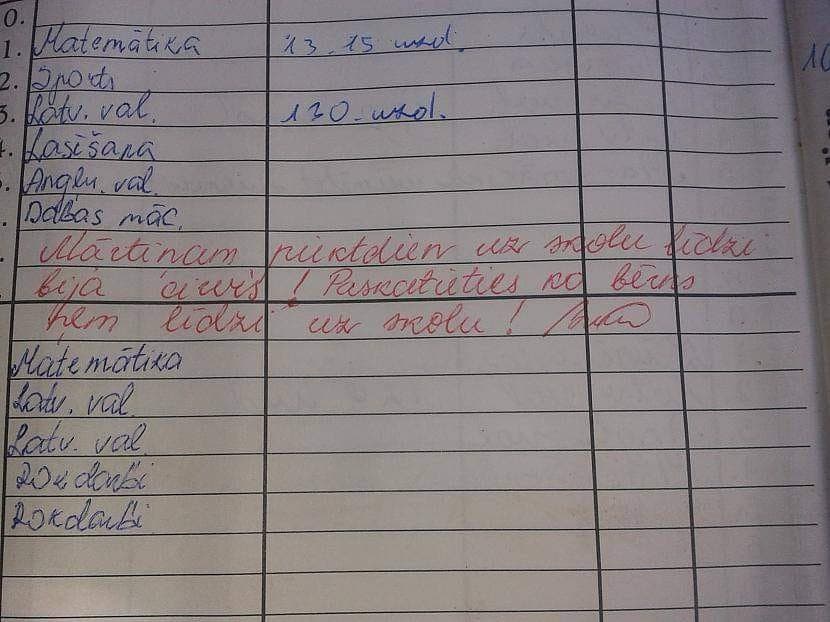 0.
1. Matemātika 13. 15 uzd.
2. Sports
3. Latv. val. 130. uzd.
4. Lasīšana
Angļu. val.
Dabas māc.
Mārtiņam piektdien uz skolu līdzi
bija cirvis! Paskatieties ko bērns
ņem līdzi uz skolu!
Matemātika
Latv. val.
Latv. val.
Rokdarbi
Rokdarbi
10